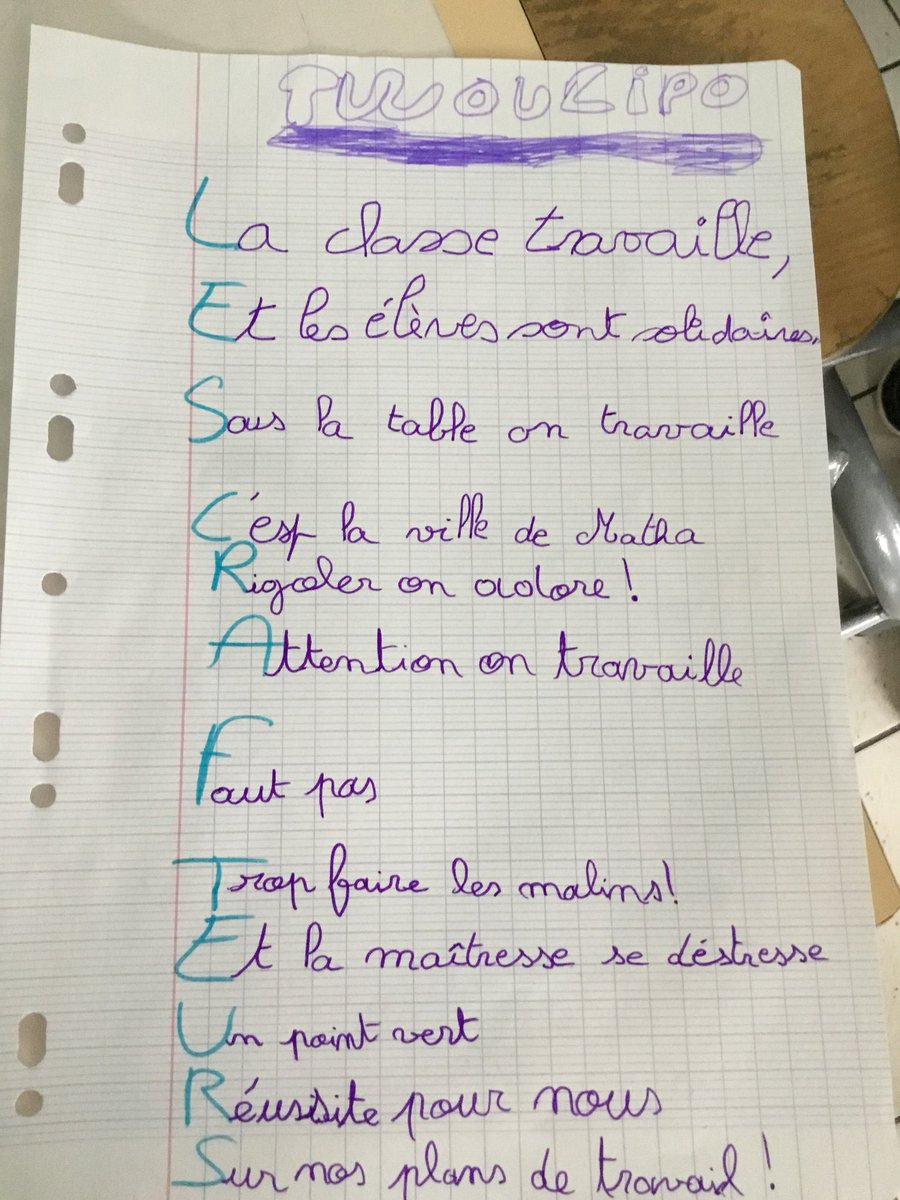 TWOULIPO
La classe travaille,
Et les élèves sont solidaires,
Sous la table on travaille
C'est la ville de Matha
Rigoler on adore !
Attention on travaille
Faut pas
Trop faire les malins !
Et la maîtresse se déstresse
Un point vert
Réussite pour nous
Sur nos plans de travail !